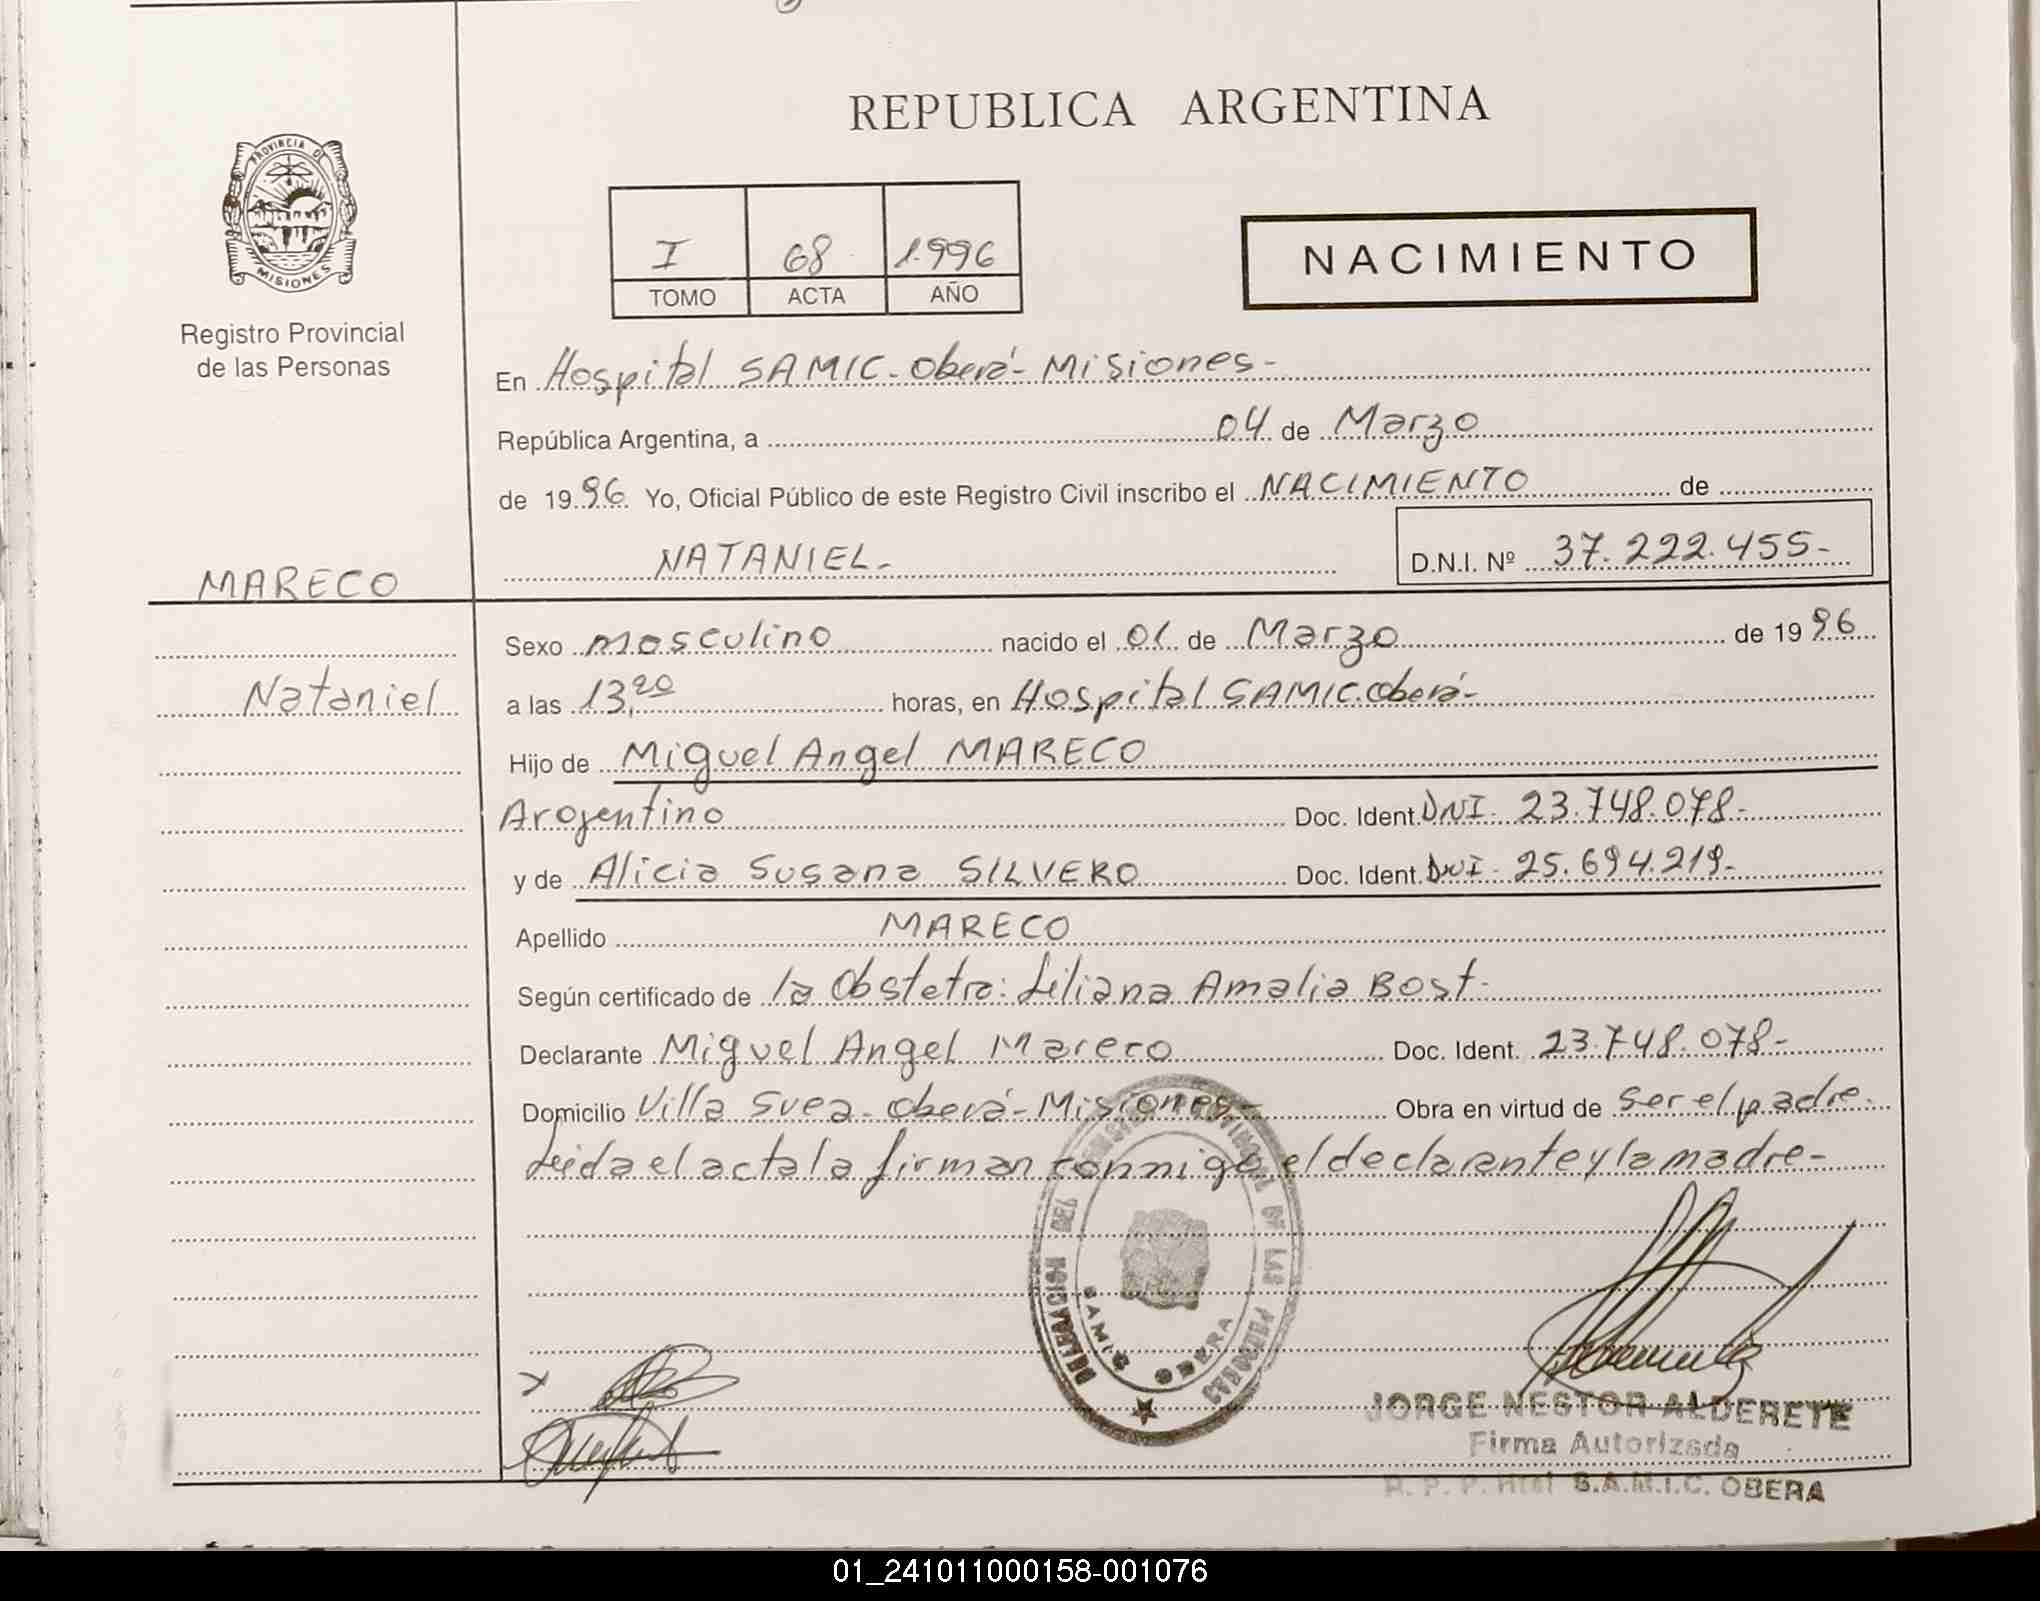 REPUBLICA ARGENTINA
PROVINCIA DE
MISIONES
Registro Provincial
de las Personas
I 68 1.996
TOMO ACTA AÑO
NACIMIENTO
En Hospital SAMIC - Oberá - Misiones -
República Argentina, a 04 de Marzo
de 1996 Yo, Oficial Público de este Registro Civil inscribo el NACIMIENTO de
NATANIEL - D.N.I. Nº 37.222.455-
MARECO
Nataniel
Sexo masculino nacido el 01 de Marzo de 1996
a las 13,20 horas, en Hospital SAMIC. Oberá-
Hijo de Miguel Angel MARECO
Arojentino Doc. Ident. DNI. 23.748.078-
y de Alicia Susana SILVERO Doc. Ident. DNI. 25.694.219-
Apellido MARECO
Según certificado de la Obstetra: Liliana Amalia Bost.
Declarante Miguel Angel Mareco Doc. Ident. 23.748.078-
Domicilio Villa Svea - Oberá - Misiones - Obra en virtud de ser el padre.
Leida el acta la firman conmigo el declarante y la madre -
DELEGACION DEL REGISTRO PROVINCIAL DE LAS PERSONAS
SAMIC OBERA
JORGE NESTOR ALDERETE
Firma Autorizada
R. P. P. Htal S.A.M.I.C. OBERA
01_241011000158-001076